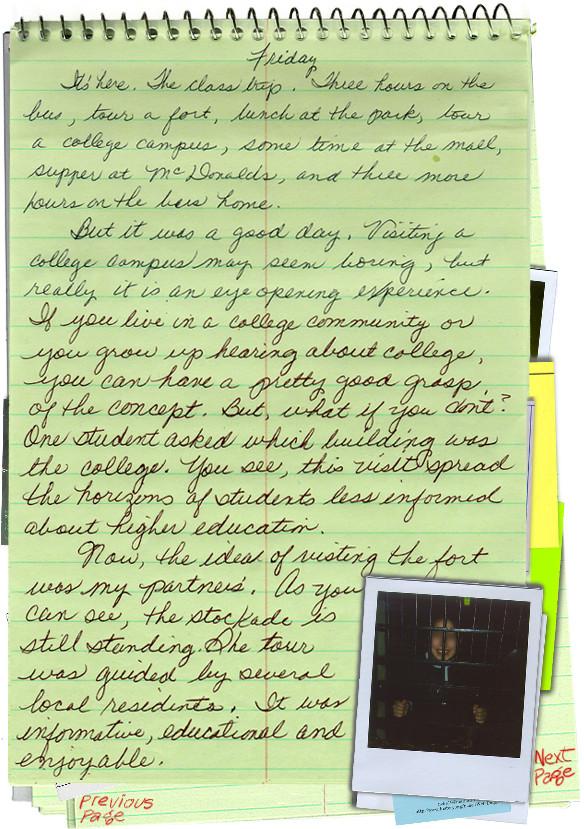 Friday
It's here. The class trip. Three hours on the
bus, tour a fort, lunch at the park, tour
a college campus, some time at the mall,
supper at McDonalds, and three more
hours on the bus home.
But it was a good day. Visiting a
college campus may seem boring, but
really it is an eye opening experience.
If you live in a college community or
you grow up hearing about college,
you can have a pretty good grasp
of the concept. But, what if you don't?
One student asked which building was
the college. You see, this visit spread
the horizons of students less informed
about higher education.
Now, the idea of visting the fort
was my partners'. As you
can see, the stockade is
still standing. The tour
was guided by several
local residents. It was
informative, educational and
enjoyable.
Next
Page
Previous
Page